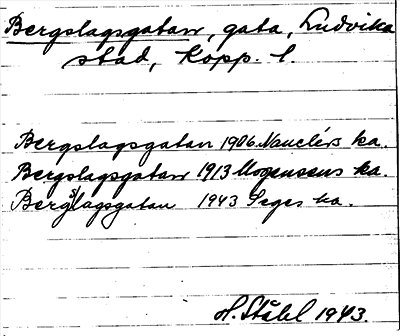 Bergslagsgatan, gata, Ludvika
stad, Kopp. l.
Bergslagsgatan 1906 Nauclérs ka.
Bergslagsgatan 1913 Mogensens ka.
Bergslagsgatan 1943 Seges ka.
H. Ståhl 1943.